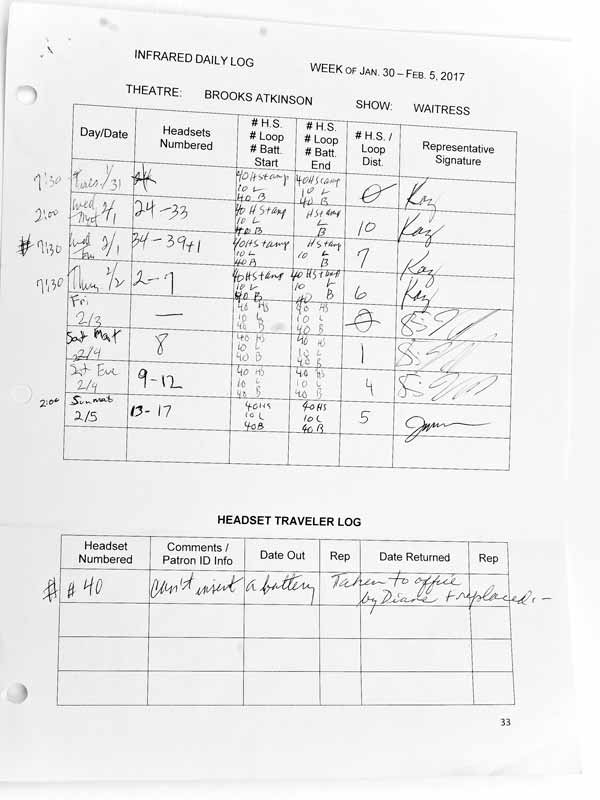 INFRARED DAILY LOG WEEK OF JAN. 30 – FEB. 5, 2017
THEATRE: BROOKS ATKINSON SHOW: WAITRESS
Day/Date Headsets Numbered # H.S. # Loop # Batt. Start # H.S. # Loop # Batt. End # H.S. / Loop Dist. Representative Signature
7:30 Tues 1/31 40 HS 10 L 40 B 40 HS 10 L 40 B 0 Kay
2:00 Wed Mat 2/1 24-33 40 HS 10 L 40 B HS L B 10 Kay
# 7:30 Wed 2/1 34-39+1 40 HS 10 L 40 B HS 10 L B 7 Kay
7:30 Thurs 2/2 2-7 40 HS 10 L 40 B 40 HS 10 L 40 B 6 Kay
Fri 2/3 — 40 HS 10 L 40 B 40 HS 10 L 40 B 0
Sat Mat 2/4 8 40 HS 10 L 40 B 40 HS 10 L 40 B 1
Sat Eve 2/4 9-12 40 HS 10 L 40 B 40 HS 10 L 40 B 4
2:00 Sun mat 2/5 13-17 40 HS 10 L 40 B 40 HS 10 L 40 B 5
HEADSET TRAVELER LOG
Headset Numbered Comments / Patron ID Info Date Out Rep Date Returned Rep
# # 40 can't insert a battery Taken to office
by Diane + replaced. –
33